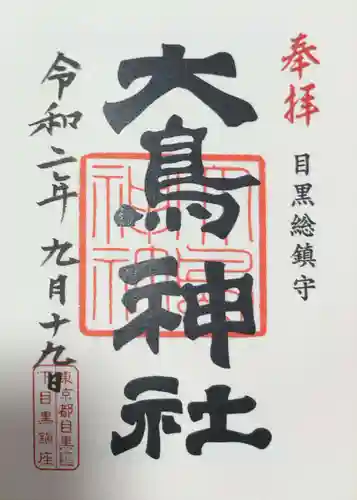 奉拝
目黒総鎮守
大鳥神社
令和二年九月十九日
東京都目黒区
下目黒鎮座